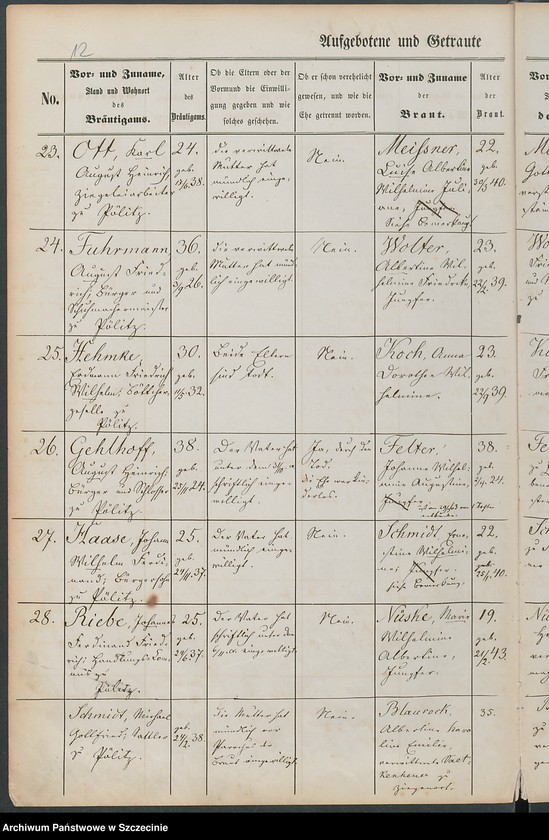 12
Aufgebotene und Getraute
No.
Vor- und Zuname,
Stand und Wohnort
des
Bräutigams.
Alter
des
Bräutigams.
Ob die Eltern oder der
Vormund die Einwilli-
gung gegeben und wie
solches geschehen.
Ob er schon verehelicht
gewesen, und wie die
Ehe getrennt worden.
Vor- und Zuname
der
Braut.
Alter
der
Braut.
23.
Ott, Karl
August Heinrich,
Ziegeleiarbeiter
zu Pölitz.
24.
geb.
38.
die verwittwete
Mutter hat
mündlich einge-
willigt.
Nein.
Meissner,
Luise Albertine
Wilhelmine Juli-
ane, Jungfer
Siehe Bemerkung!
22.
geb.
40.
24.
Fuhrmann
August Fried-
rich, Bürger und
Schuhmachermeister
zu Pölitz.
36.
geb.
26.
die verwittwete
Mutter hat münd-
lich eingewilligt.
Nein.
Wolter,
Albertine Wil-
helmine Friederike,
Jungfer.
23.
geb.
39.
25.
Hehmke,
Erdmann Friedrich
Wilhelm, Böttcher-
geselle zu
Pölitz.
30.
geb.
32.
Beide Eltern
sind todt.
Nein.
Koch, Anna
Dorothee Wil-
helmine.
23.
geb.
39.
26.
Gehlhoff,
August Heinrich
Bürger und Schlosser
zu Pölitz.
38.
geb.
24.
Der Vater hat
unter dem
schriftlich einge-
willigt.
Ja, durch den
Tod.
Die Ehe war kin-
derlos.
Felter,
Johanne Wilhel-
mine Augustine,
Jungfer
38.
geb.
24.
27.
Haase, Johann
Wilhelm Ferdi-
nand, Bürgersohn
zu Pölitz.
25.
geb.
37.
Der Vater hat
mündlich einge-
willigt.
Nein.
Schmidt, Erne-
stine Wilhelmi-
ne, Jungfer.
siehe Bemerkung.
22.
geb.
40.
28.
Riebe, Johannes
Ferdinand Fried-
rich, Handlungs
zu
Pölitz.
25.
geb.
37.
Der Vater hat
schriftlich unter dem
eingewilligt.
Nein.
Nüske, Marie
Wilhelmine
Albertine,
Jungfer.
19.
geb.
43.
Schmidt, Michael
Gottfried, Sattler
zu Pölitz.
geb.
38.
die Mutter hat
mündlich vor
Parochus der
Braut eingewilligt.
Nein.
Blaurock,
Albertine Karo-
line Emilie,
verwittwete
zu
Ziegenort.
35.
Archiwum Państwowe w Szczecinie